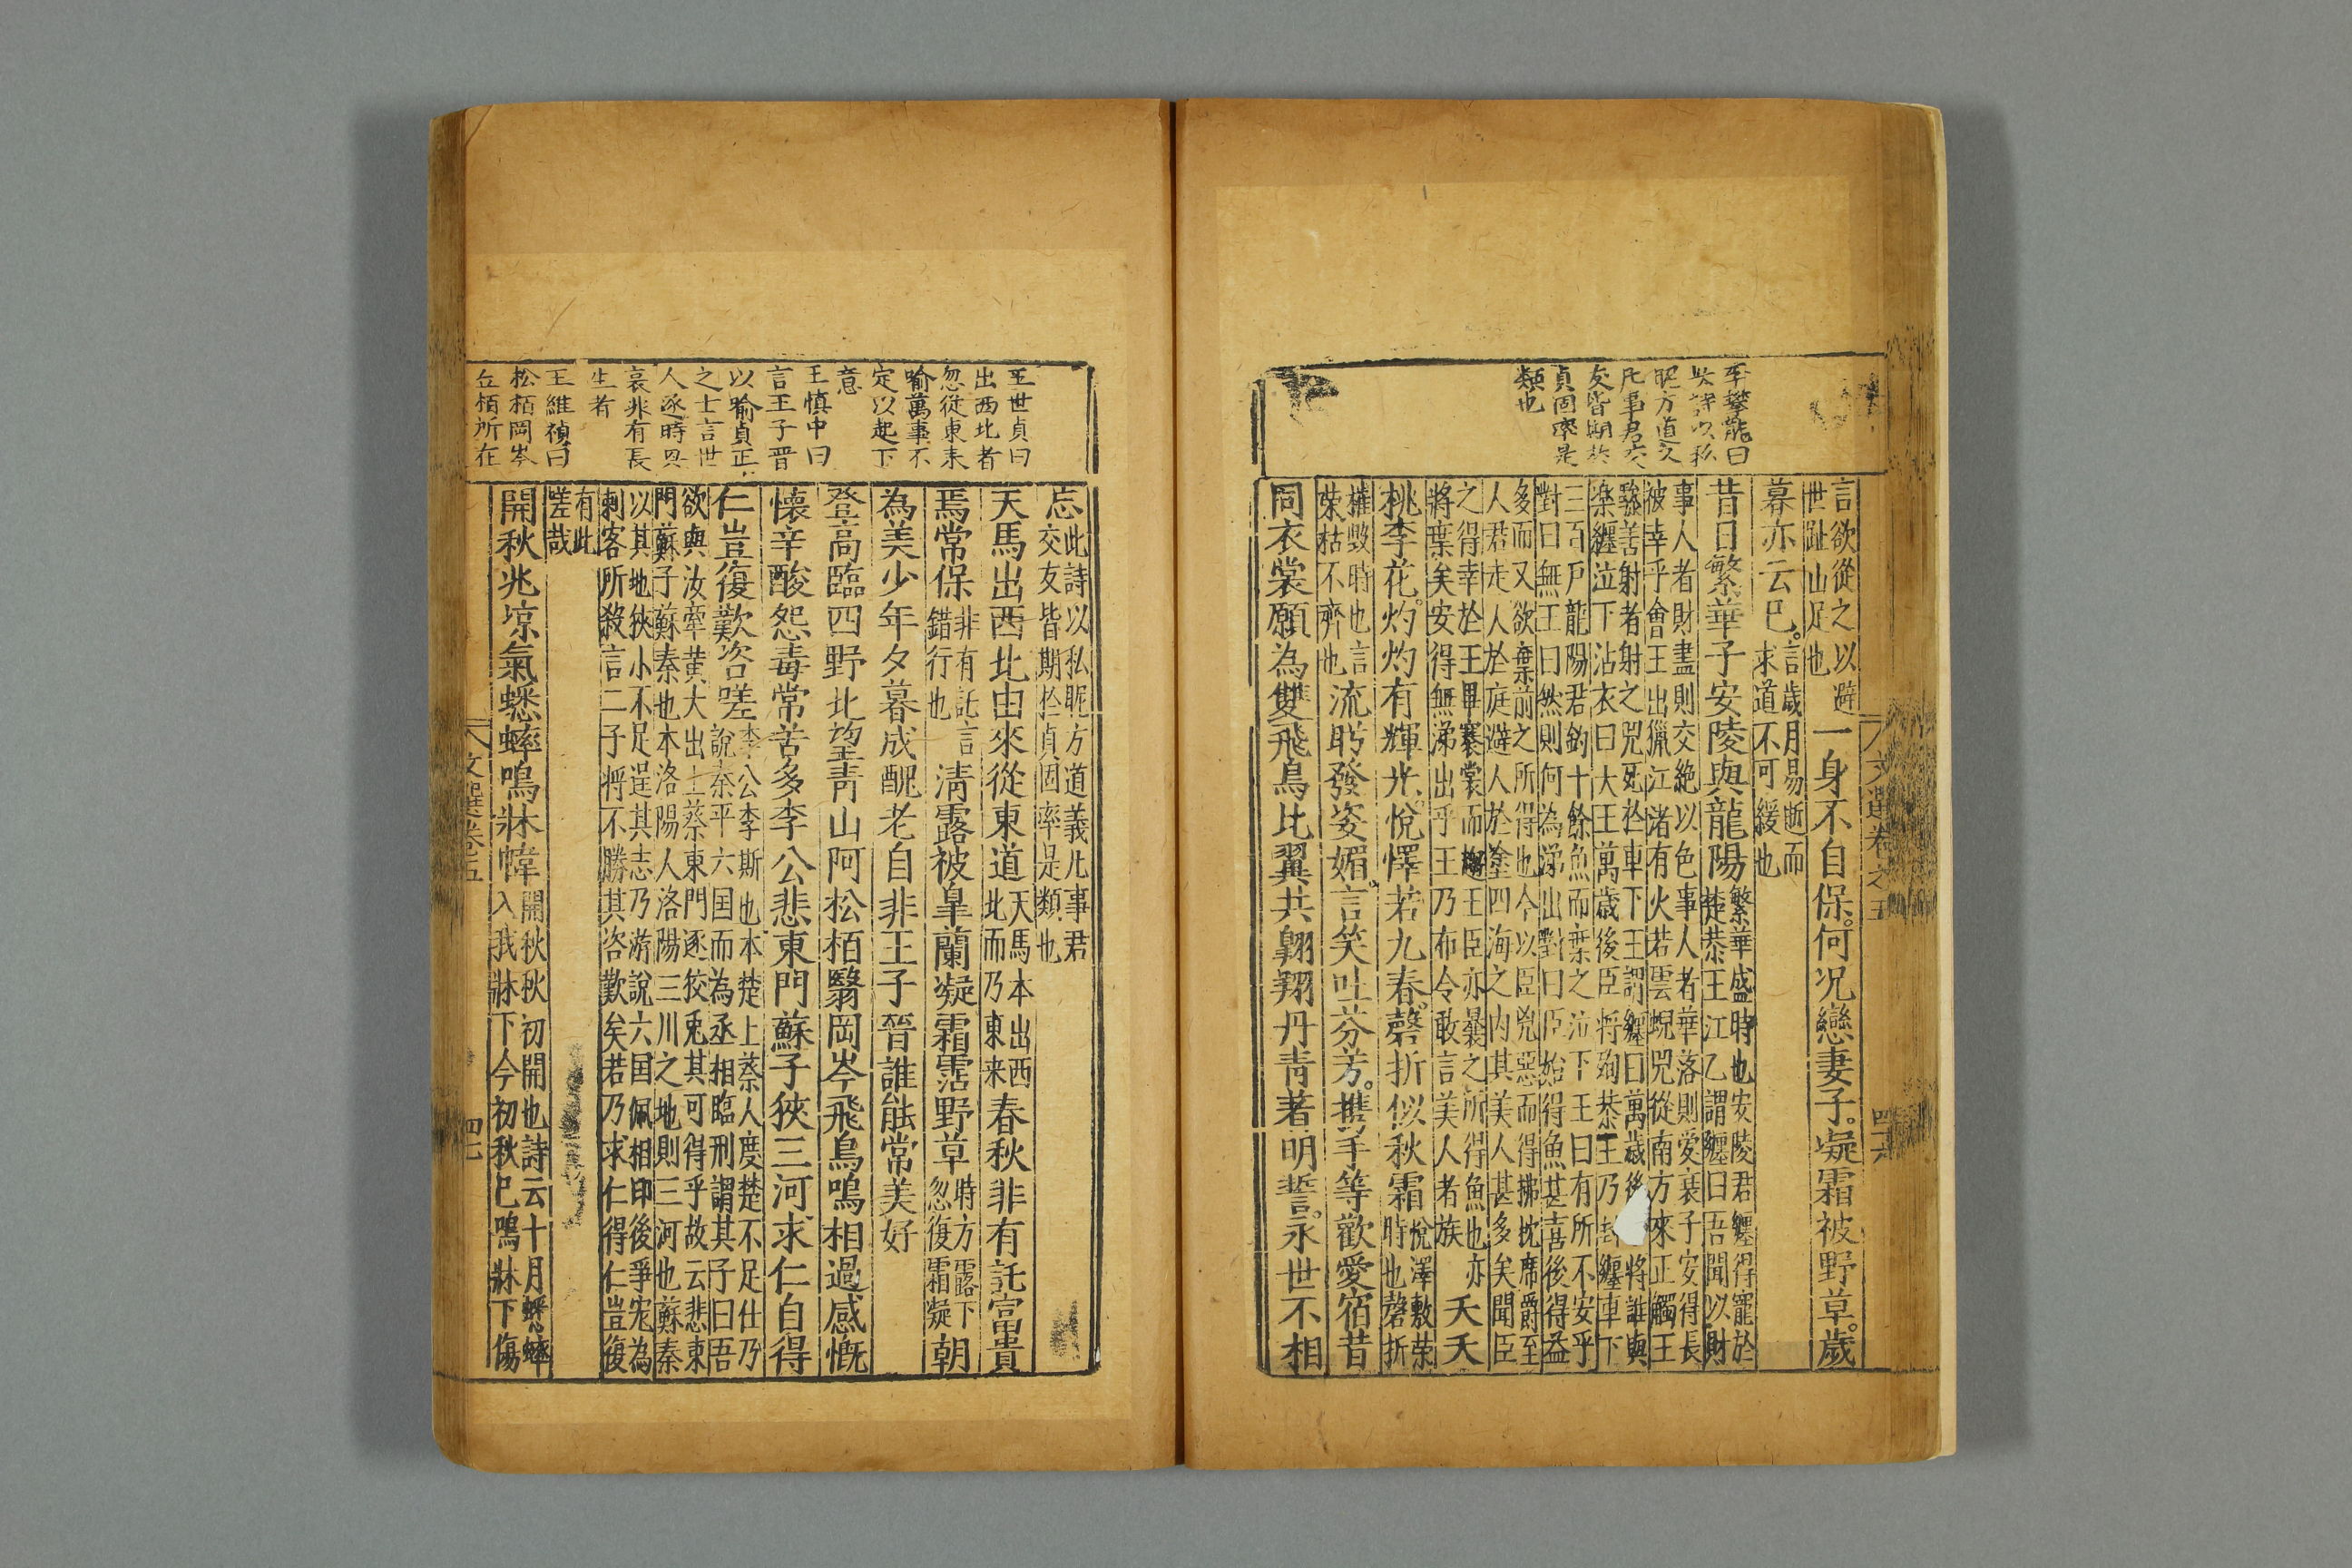 李攀龍曰
此詩以私
昵方道义
凡事君交
友皆期於
貞固率是
類也
言欲從之以避
世趾山足也
一身不自保何况戀妻子凝霜被野草歲
暮亦云巳
言歲月易逝而
求道不可緩也
昔日繁華子安陵與龍陽
繁華盛時也安陵君纏得寵於
楚恭王江乙謂纏曰吾聞以財
事人者財盡則交絶以色事人者華落則愛衰子安得長
被幸乎會王出獵江渚有火若雲蜺兕從南方來正觸王
驂善射者射之兕死於車下王謂纏曰萬歲後
將誰與
樂纏泣下沾衣曰大王萬歲後臣将殉恭王乃封纏車下
三百戶龍陽君釣十餘魚而棄之泣下王曰有所不安乎
對曰無王曰然則何為涕出對曰臣始得魚甚喜後得益
多而又欲棄前之所得也今以臣兇惡而得拂枕席爵至
人君走人於庭避人於塗四海之内其美人甚多矣聞臣
之得幸於王畢褰裳而趨王臣亦曩之所得魚也亦
將棄矣安得無涕出乎王乃布令敢言美人者族
夭夭
桃李花灼灼有輝光悅懌若九春磬折似秋霜
悅澤敷荣
時也磬折
摧毀時也言
荣枯不齊也
流盻發姿媚言笑吐芬芳携手等歡愛宿昔
同衣裳願為雙飛鳥比翼共翺翔丹青著明誓永世不相
文選卷之五
四六
王世貞曰
出西北者
忽從東来
喻萬事不
定以起下
意
王慎中曰
言王子晋
以喻貞正
之士言世
人逐時興
哀非有長
生者
王維禎曰
松栢岡岑
丘栢所在
忘
此詩以私昵方道義凡事君
交友皆期於貞固率是類也
天馬出西北由來從東道
天馬本出西
北而乃東来
春秋非有託富貴
焉常保
非有託言
錯行也
清露被皋蘭凝霜霑野草
時方露下
忽復霜凝
朝
為美少年夕暮成醜老自非王子晉誰能常美好
登高臨四野北望青山阿松栢翳岡岑飛鳥鳴相過感慨
懷辛酸怨毒常苦多李公悲東門蘇子狹三河求仁自得
仁豈復歎咨嗟
李公李斯也本楚上蔡人度楚不足仕乃
說秦平六国而為丞相臨刑謂其子曰吾
欲與汝牽黄犬出上蔡東門逐狡兎其可得乎故云悲東
門蘇子蘇秦也本洛陽人洛陽三川之地則三河也蘇秦
以其地狹小不足逞其志乃游說六国佩相印後爭寵為
刺客所殺言二子将不勝其咨歎矣若乃求仁得仁豈復
有此
嗟哉
開秋兆凉氣蟋蟀鳴牀幃
開秋秋初開也詩云十月蟋蟀
入我牀下今初秋巳鳴牀下傷
文選卷五
四七